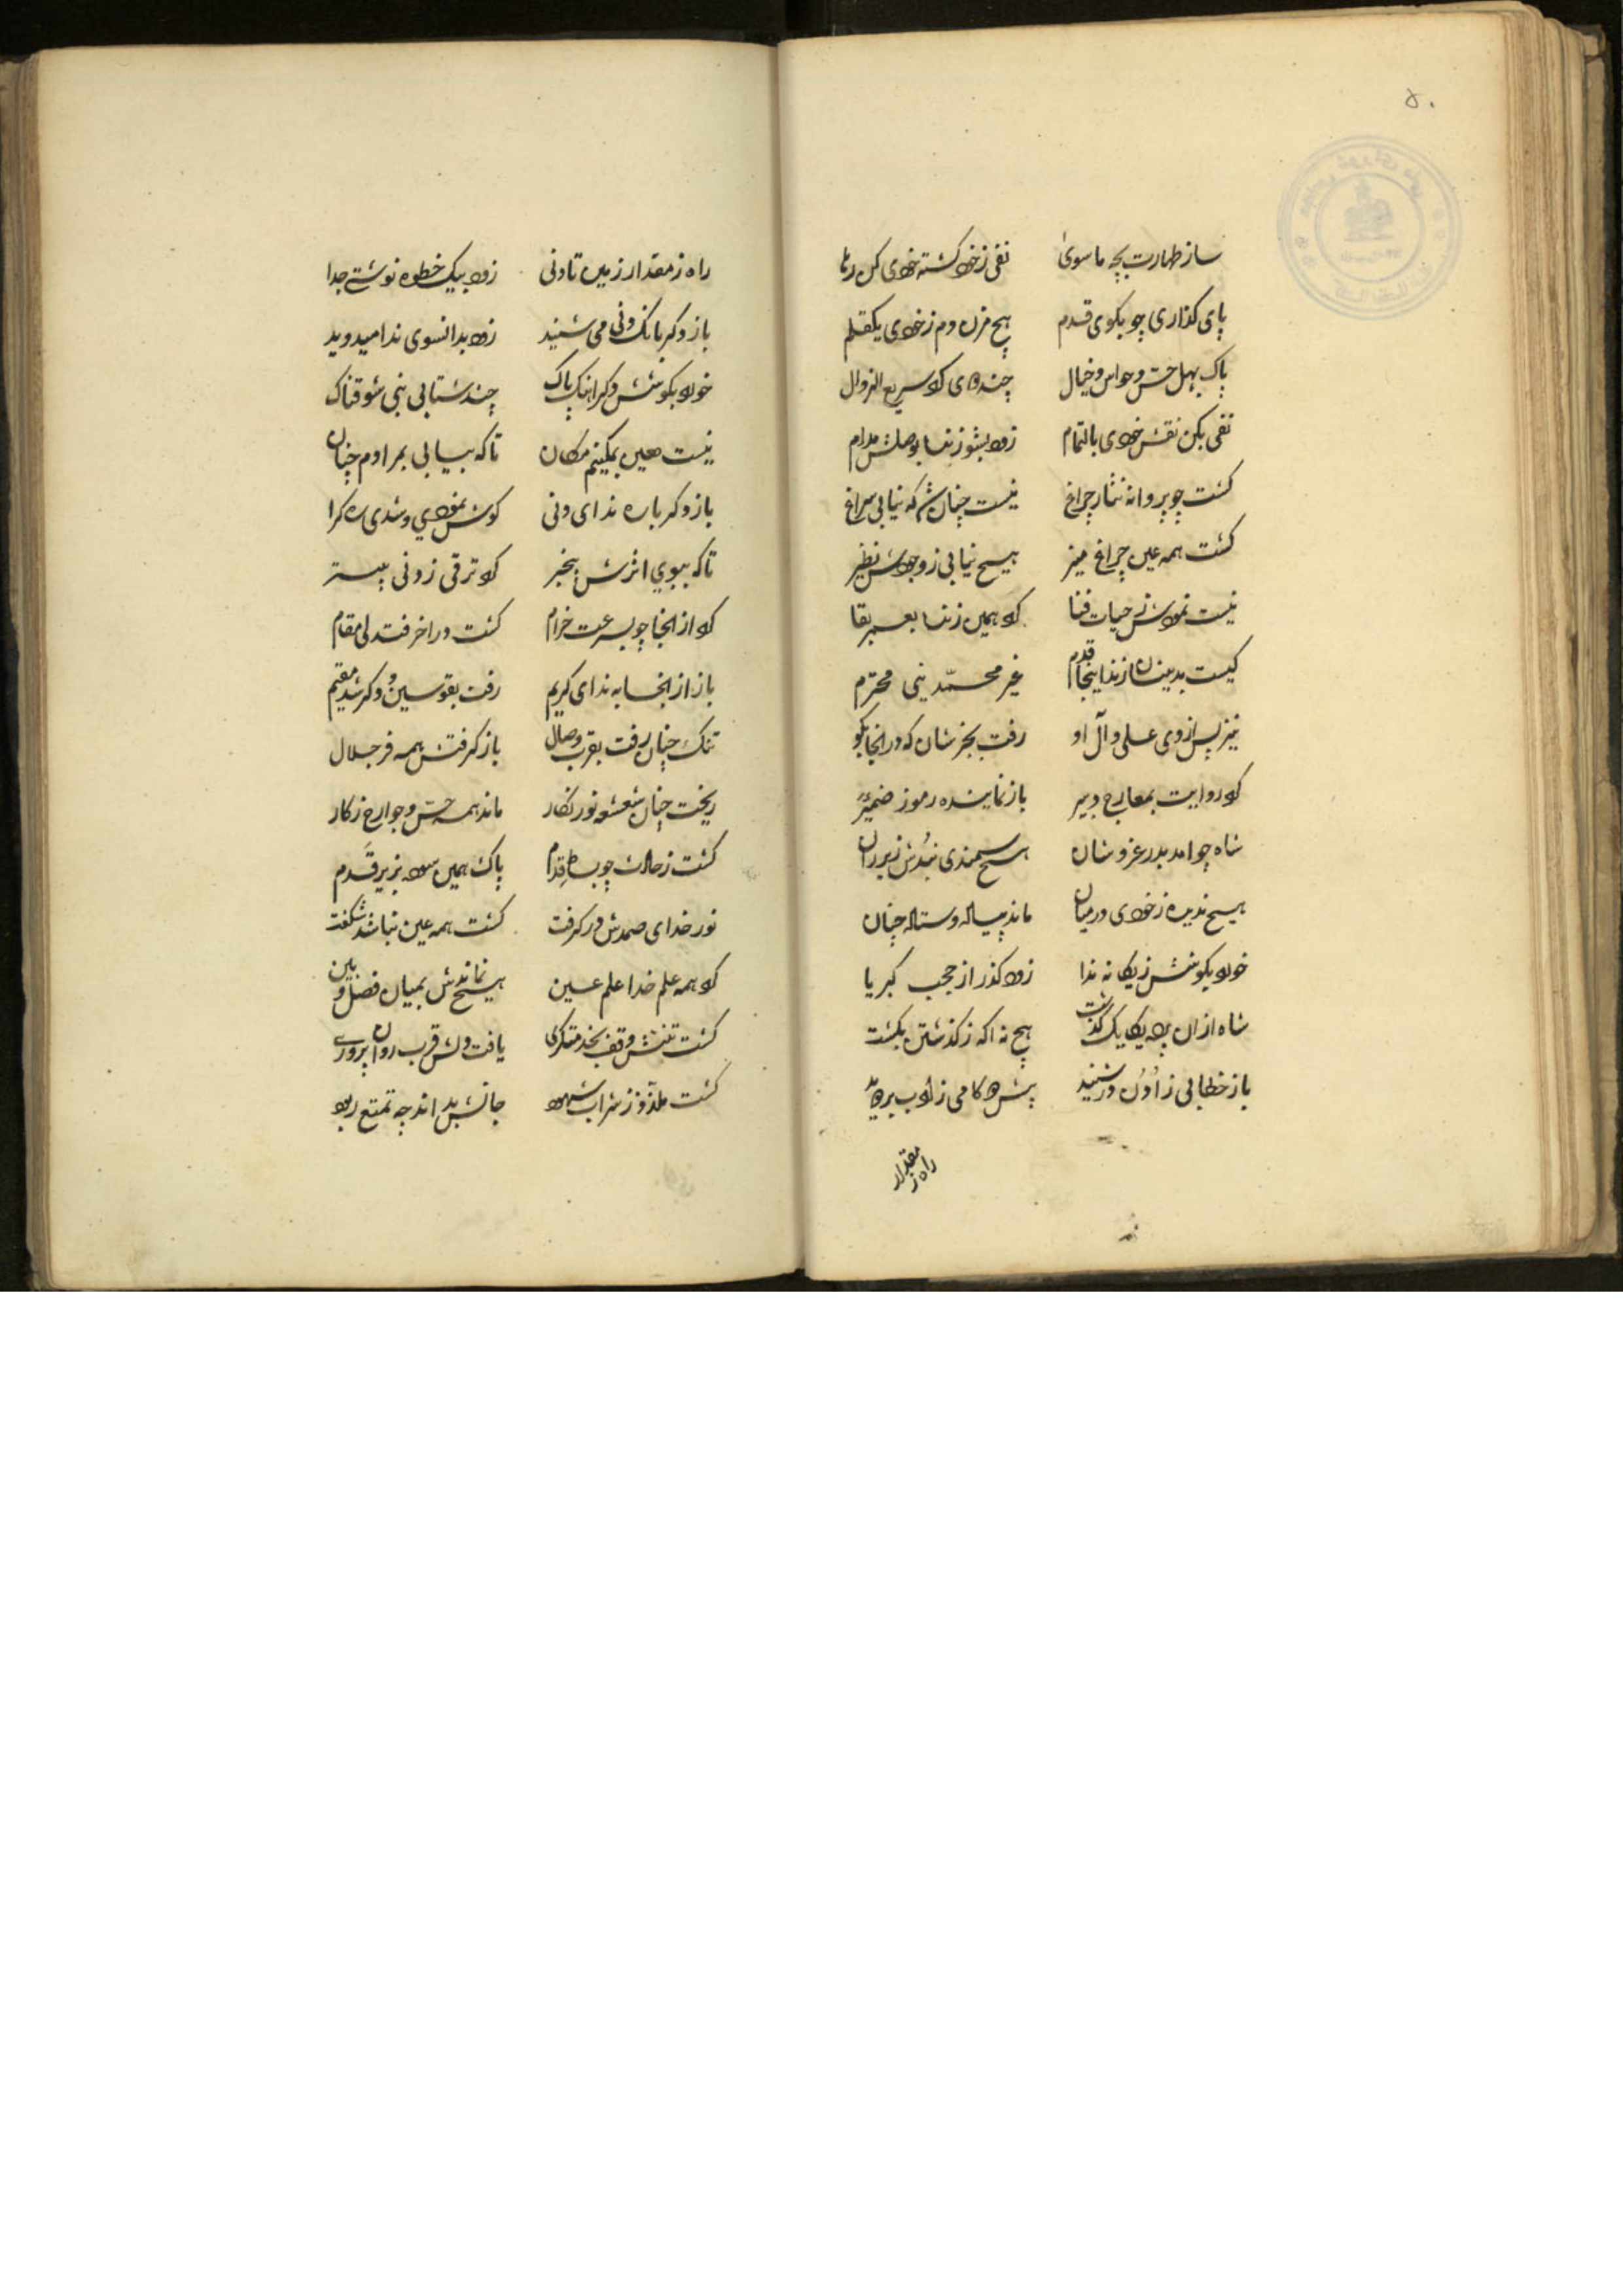 ۵۰
ساز طهارت بچه ماسوی نفی ز خود گشته خودی کن رها
پای گذاری چو بکوی قدم هیچ مزن دم ز خودی یکقلم
پاک بهل حس و حواس و خیال سریع الزوال
نفی بکن نقش خودی بالتمام زود بشو زنده بوصلش مدام
گشت چو پروانه نثار چراغ نیست چنان شد که نیابی سراغ
گشت همه عین چراغ منیر هیچ نیابی ز وجودش نظیر
نیست نمودش ز حیات فنا کو همین زنده بعمر بقا
کیست بدینسان زند اینجا قدم غیر محمّد نبی محترم
نیز پس از وی علی و آل او رفت بجز شان که در انجا بگو
کو روایت بمعارج دبیر باز نماینده رموز ضمیر
شاه چو امد بدر عز و شان هیچ سمندی نبدش زیر ران
هیچ ندیده ز خودی در میان ماند پیاله و ستاله چنان
خود بگوشش ز یگانه ندا زود گذر از حجب کبریا
شاه از ان پرده یکایک گذشت هیچ نه اگه ز گذشتن بگشت
باز خطابی ز اُدنُ در شنید پیش دو گامی ز ادب بر دوید
راه ز مقدار
راه ز مقدار زمین تا ونی زود بیک خطوه نوشتی جدا
باز دگر بانک ونی می شنید زود بدانسوی ندا میدوید
خود بگوشش دگر اهنک پاک چند شتابی نبی شوقناک
نیست همین بمکینم مکان تا که بیابی بمرادم چنان
باز دگر باره ندای ونی گوش نمودی و شدی ره گرا
تا که ببوی اثرش بیخبر کو ترقی ز ونی بیستر
کو از انجا چو بسرعت خرام گشت ورا خر فتدلی مقام
باز از انجا به ندای کریم رفت بقوسین و دگر شد مقیم
تنک چنان رفت بقرب وصال باز گرفتش همه فر جلال
ریخت چنان شعشعه نور نگار ماند همه حس و جوارح ز کار
گشت ز حالت چو بساط قدم پاک همین سود بزیر قَدم
نور خدای صمدش در گرفت گشت همه عین نباشد شگفت
کو همه علم خدا علم عین هیچ نماندش بمیان فصل و بین
گشت تنش وقف بخدمتگری یافت دلش قرب روان پروری
گشت ملذّذ ز شراب شهود جانش بد اندجه تمتع ربود